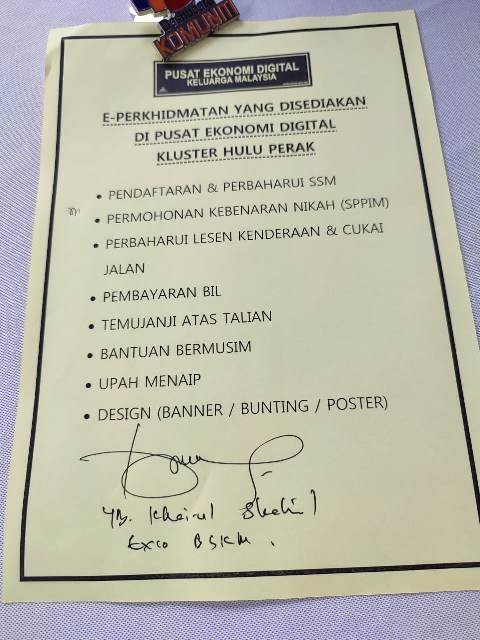 KOMUNITI
PUSAT EKONOMI DIGITAL
KELUARGA MALAYSIA
E-PERKHIDMATAN YANG DISEDIAKAN
DI PUSAT EKONOMI DIGITAL
KLUSTER HULU PERAK
• PENDAFTARAN & PERBAHARUI SSM
• PERMOHONAN KEBENARAN NIKAH (SPPIM)
• PERBAHARUI LESEN KENDERAAN & CUKAI
JALAN
• PEMBAYARAN BIL
• TEMUJANJI ATAS TALIAN
• BANTUAN BERMUSIM
• UPAH MENAIP
• DESIGN (BANNER / BUNTING / POSTER)
YB. Khairul
Exco BSKM.